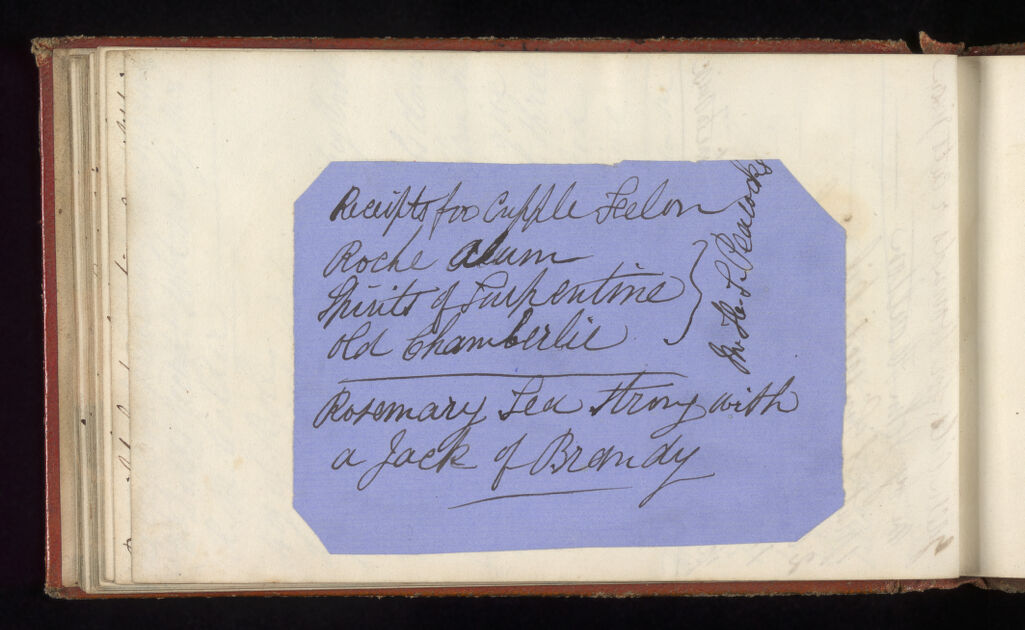 Receipts for Cupple Felon
Roche Alum
Spirits of Turpentine
old Chamberlie
Mr H. S. Peacock
Rosemary Tea Strong with
a Jack of Brandy